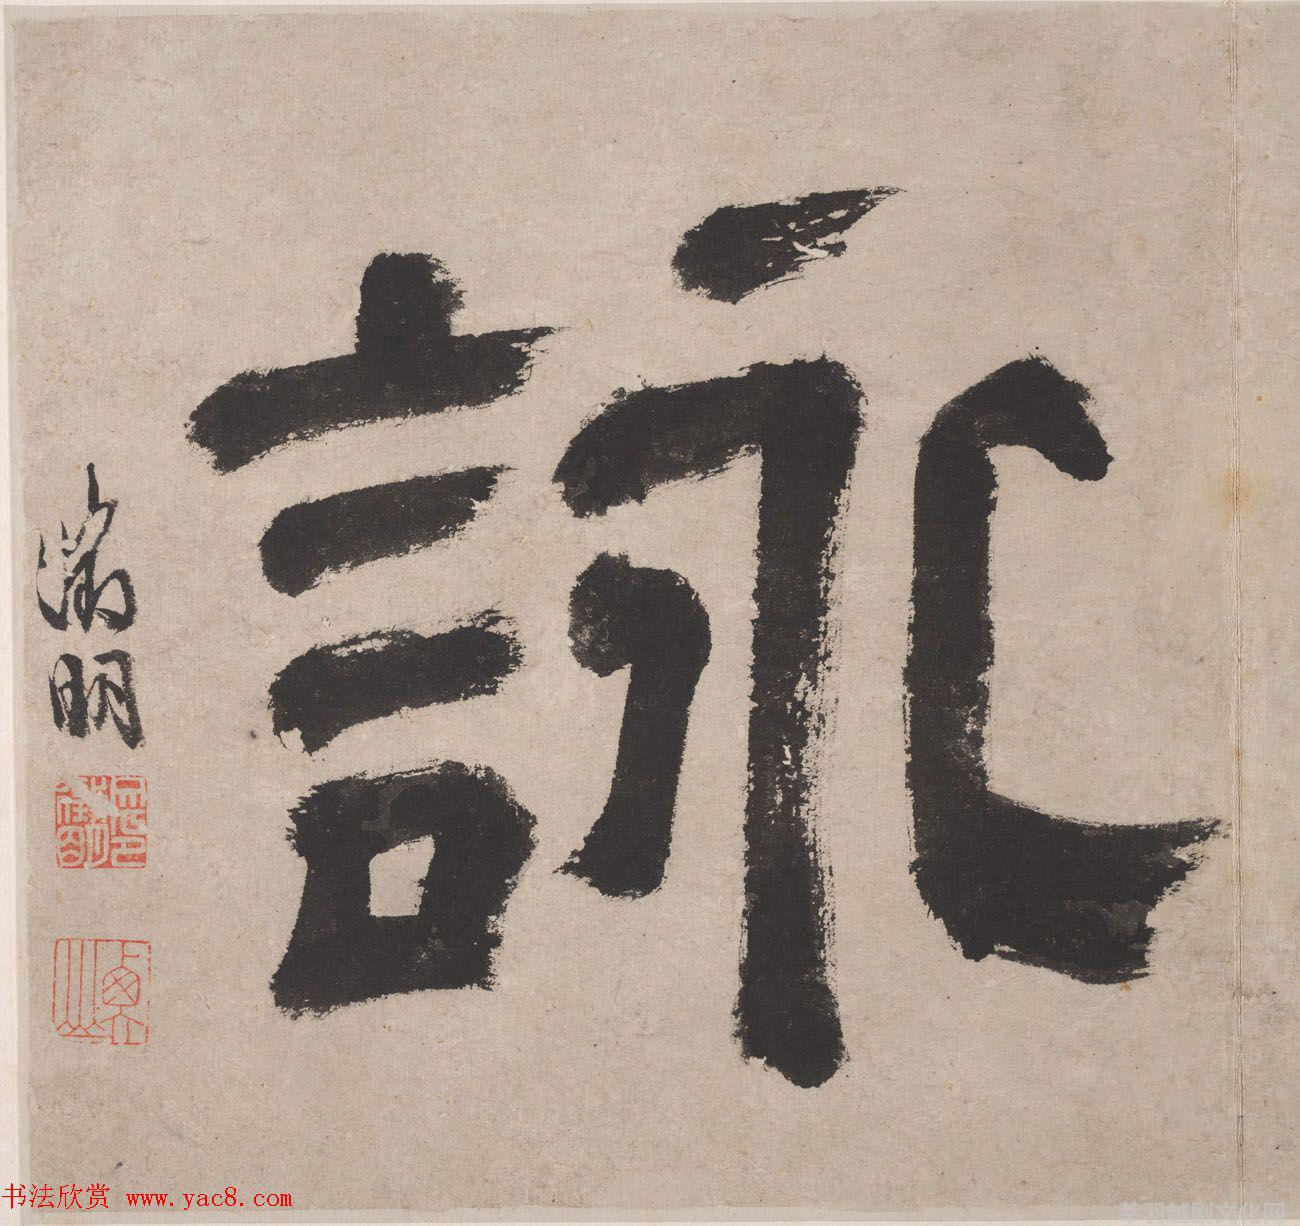 詠
徵明
衡山
书法欣赏 www.yac8.com